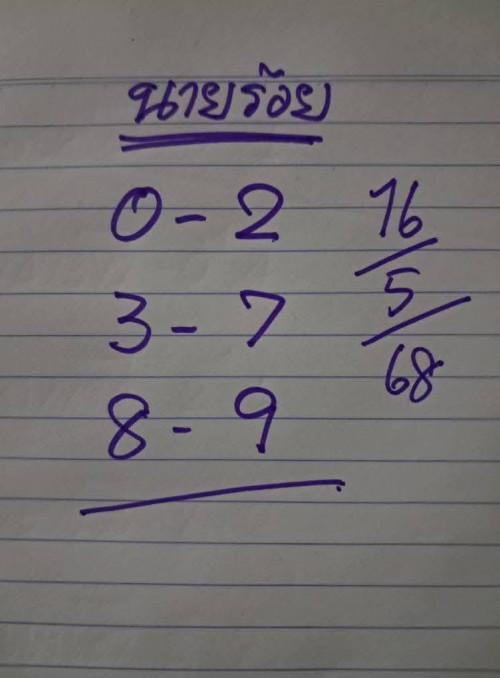 นายร้อย
0 - 2
3 - 7
8 - 9
16/5/68